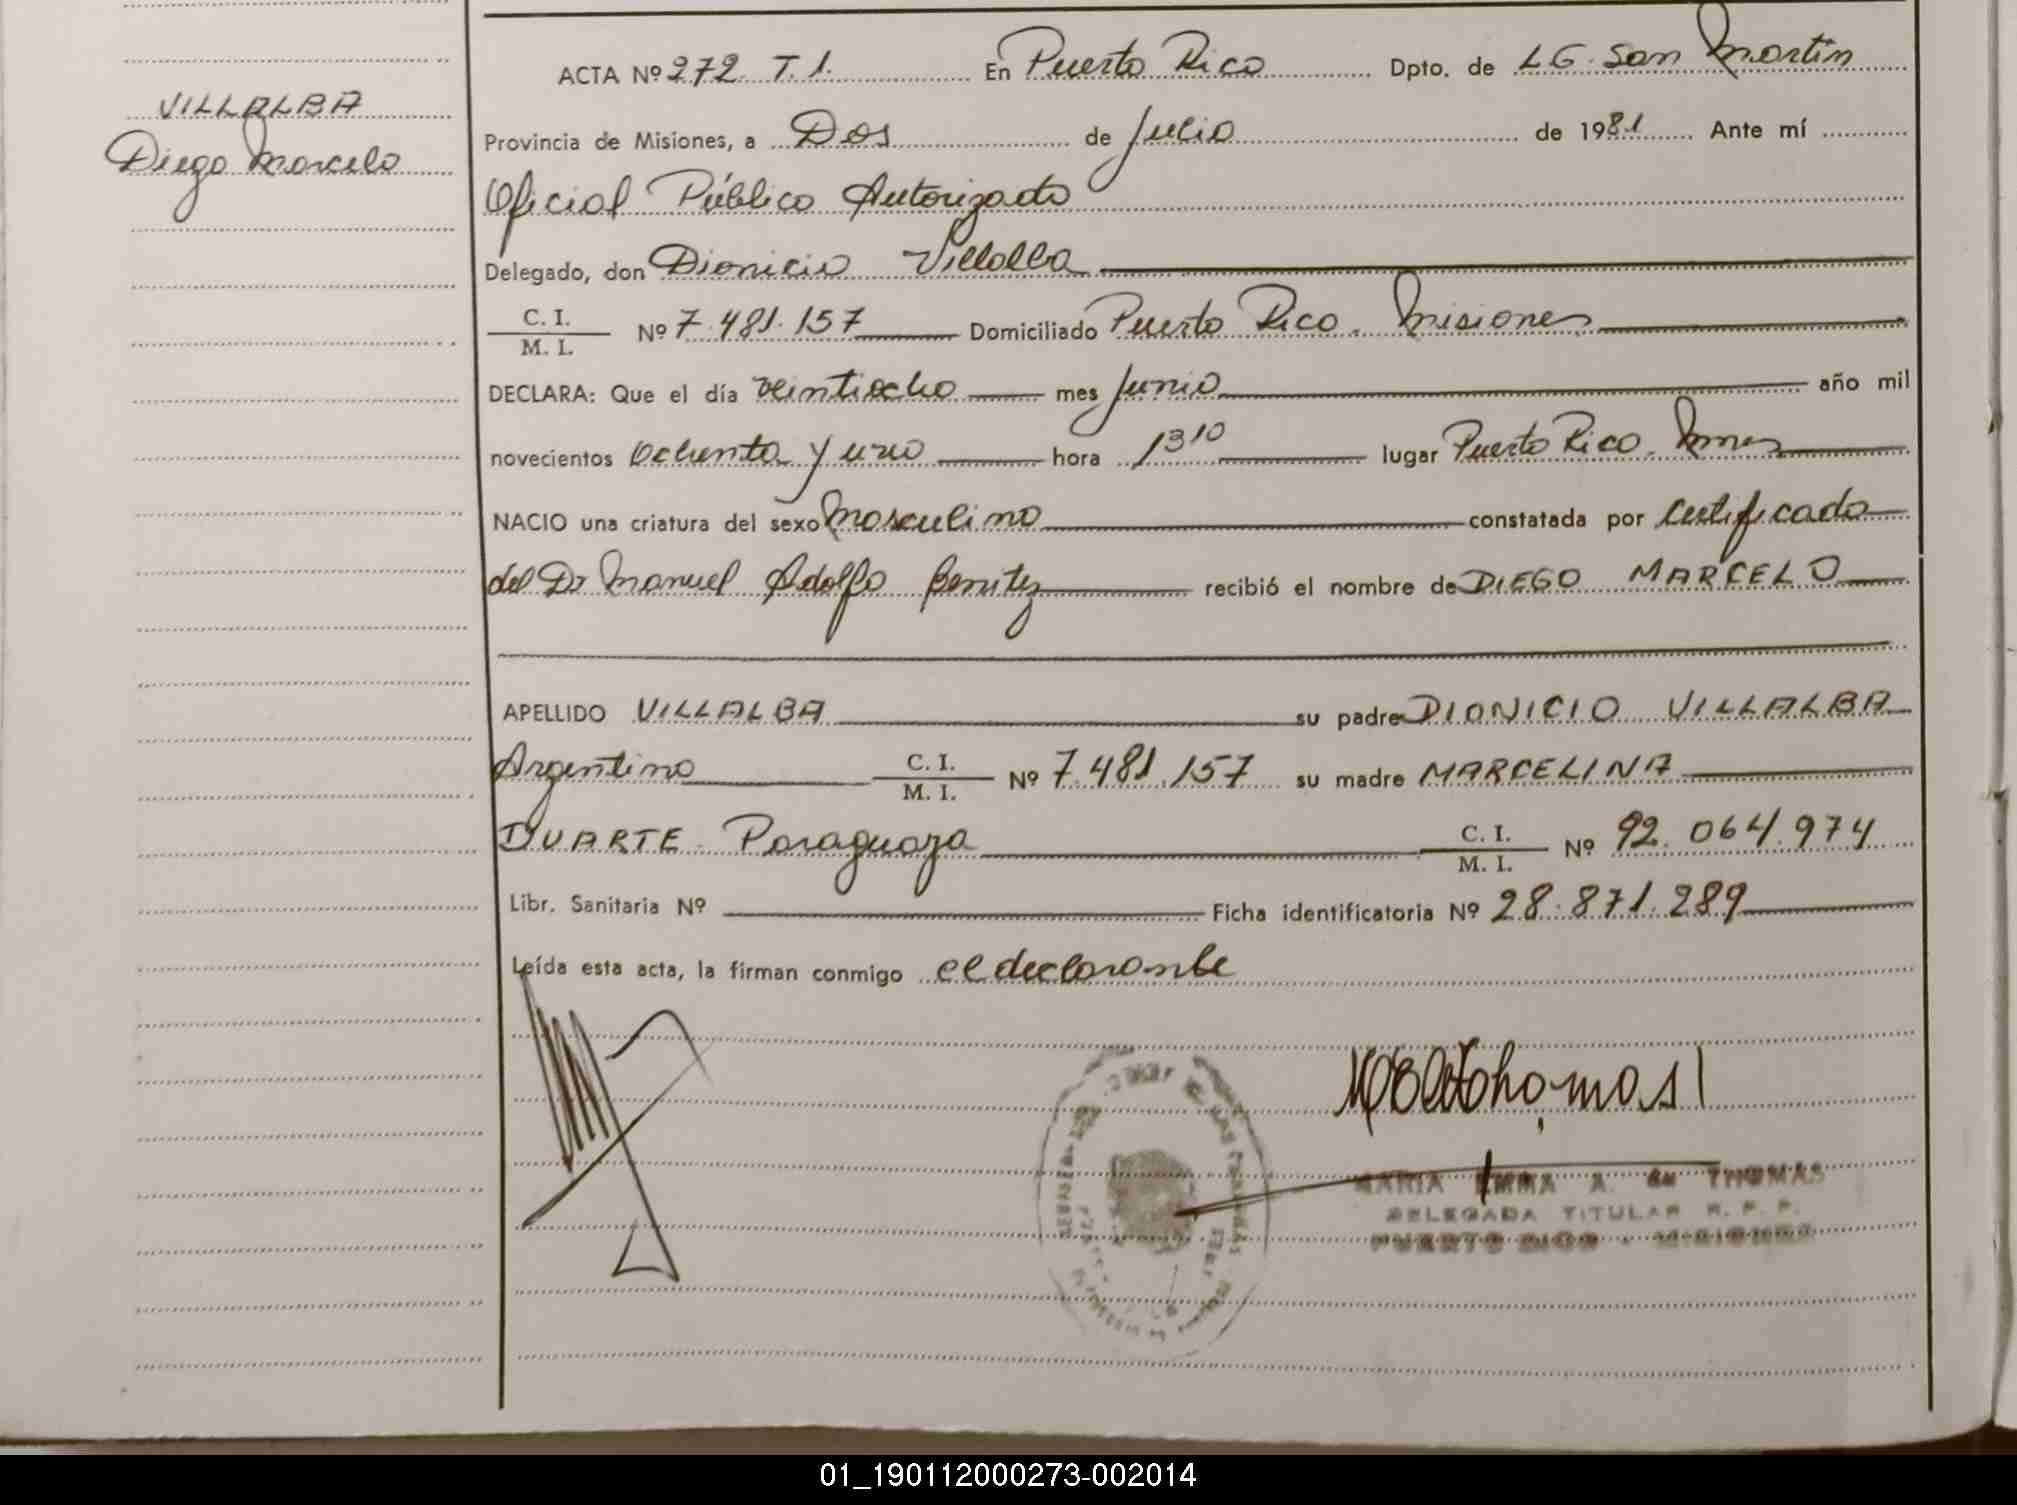 VILLALBA
Diego Marcelo
ACTA Nº 272 T.1. En Puerto Rico Dpto. de LG. San Martín
Provincia de Misiones, a Dos de Julio de 1981 Ante mí
Oficial Público Autorizado
Delegado, don Dionicio Villalba
C. I. / M. I. Nº 7.481.157 Domiciliado Puerto Rico. Misiones
DECLARA: Que el día veintiocho mes Junio año mil
novecientos Ochenta y uno hora 13¹⁰ lugar Puerto Rico. Mnes
NACIO una criatura del sexo Masculino constatada por Certificado
del Dr Manuel Adolfo Benitez recibió el nombre de DIEGO MARCELO
APELLIDO VILLALBA su padre DIONICIO VILLALBA
Argentino C. I. / M. I. Nº 7.481.157 su madre MARCELINA
DUARTE - Paraguaya C. I. / M. I. Nº 92.064.974
Libr. Sanitaria Nº Ficha identificatoria Nº 28.871.289
Leída esta acta, la firman conmigo el declarante
MARIA EMMA A. de THOMAS
DELEGADA TITULAR R. P. P.
PUERTO RICO - MISIONES
01_190112000273-002014